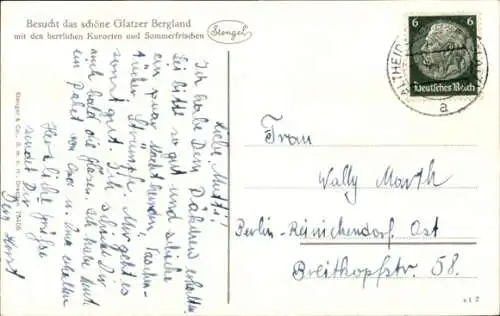 Besucht das schöne Glatzer Bergland
mit den herrlichen Kurorten und Sommerfrischen
Stengel
Liebe Mutti!
Ich habe Dein Päckchen erhalten.
Sei bitte so gut und schicke
ein paar Nachthemden, Taschen-
tücher, Strümpfe. Mir geht es
sonst gut. Ich schicke Dir
auch bald die Gläser. Ich habe heut
ein Paket von erhalten
Herzliche Grüße
sendet Dir
Dein Horst
Stengel & Co., G.m.b.H., Dresden
6 6
Deutsches Reich
ALTHEIDE
a
Frau
Wally
Berlin-Reinickendorf Ost
Breitkopfstr. 58.